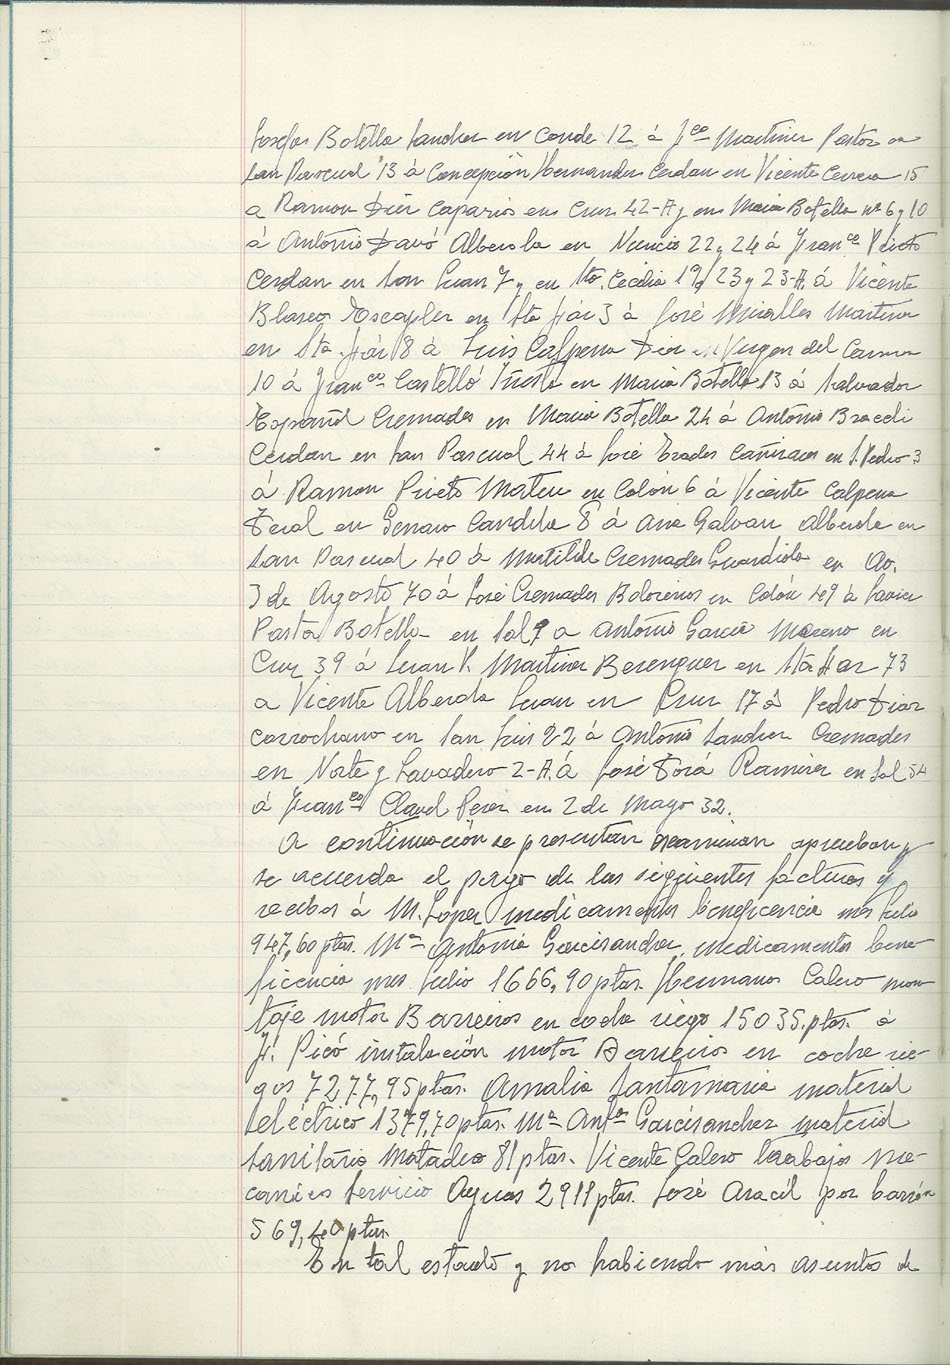 Josefa Botella Sanchez en Conde 12 á Fco Martinez Pastor en
San Pascual 13 á Concepción Hernandez Cerdan en Vicente Cervera 15
a Ramon Diez Caparros en Cruz 42-A y en Maria Botella nº 6 y 10
á Antonio Davó Alberola en Nuncio 22 y 24 á Franco Prieto
Cerdan en San Juan 7 y en Sta. Cecilia 19, 23 y 23-A. á Vicente
Blasco Escapler en Sta Faz 3 á José Miralles Martinez
en Sta. Faz 8 á Luis Calpena Diez en Virgen del Carmen
10 á Franco Castelló en Maria Botella 13 á Salvador
Español Cremades en Maria Botella 24 á Antonio Braceli
Cerdan en San Pascual 44 á José Prades Cañizares en S. Pedro 3
á Ramon Prieto Mateu en Colón 6 á Vicente Calpena
en Genaro Candela 8 á Ana Galvan Alberola en
San Pascual 40 á Matilde Cremades Guardiola en Av.
3 de Agosto 70 á José Cremades Bolorinos en Colón 49 á Javier
Pastor Botella en Sol 9 a Antonio Garcia Moreno en
Cruz 39 á Juan V. Martinez Berenguer en Sta Faz 73
a Vicente Alberola Juan en Cruz 17 á Pedro Diaz
Carrochano en San Luis 22 á Antonio Sanchez Cremades
en Norte y Lavadero 2-A. á José Torá Ramirez en Sol 54
á Franco Claud Perez en 2 de Mayo 32.
A continuación se presentan examinan aprueban y
se acuerda el pago de las siguientes facturas y
recibos á M. Lopez medicamentos beneficencia mes Julio
947,60 ptas. Mª Antonia Garcisanchez, medicamentos bene-
ficencia mes Julio 1666,90 ptas. Hermanos Calero mon-
taje motor Barreiros en coche riego 15035 ptas. á
F. Picó instalación motor Barreiros en coche rie-
gos 7277,95 ptas. Amalia Santamaria material
eléctrico 1379,70 ptas. Mª Antª Garcisanchez material
sanitario Matadero 81 ptas. Vicente Calero trabajos me-
canicos Servicio Aguas 2911 ptas. José Aracil por barrón
569,40 ptas.
En tal estado y no habiendo más asuntos de